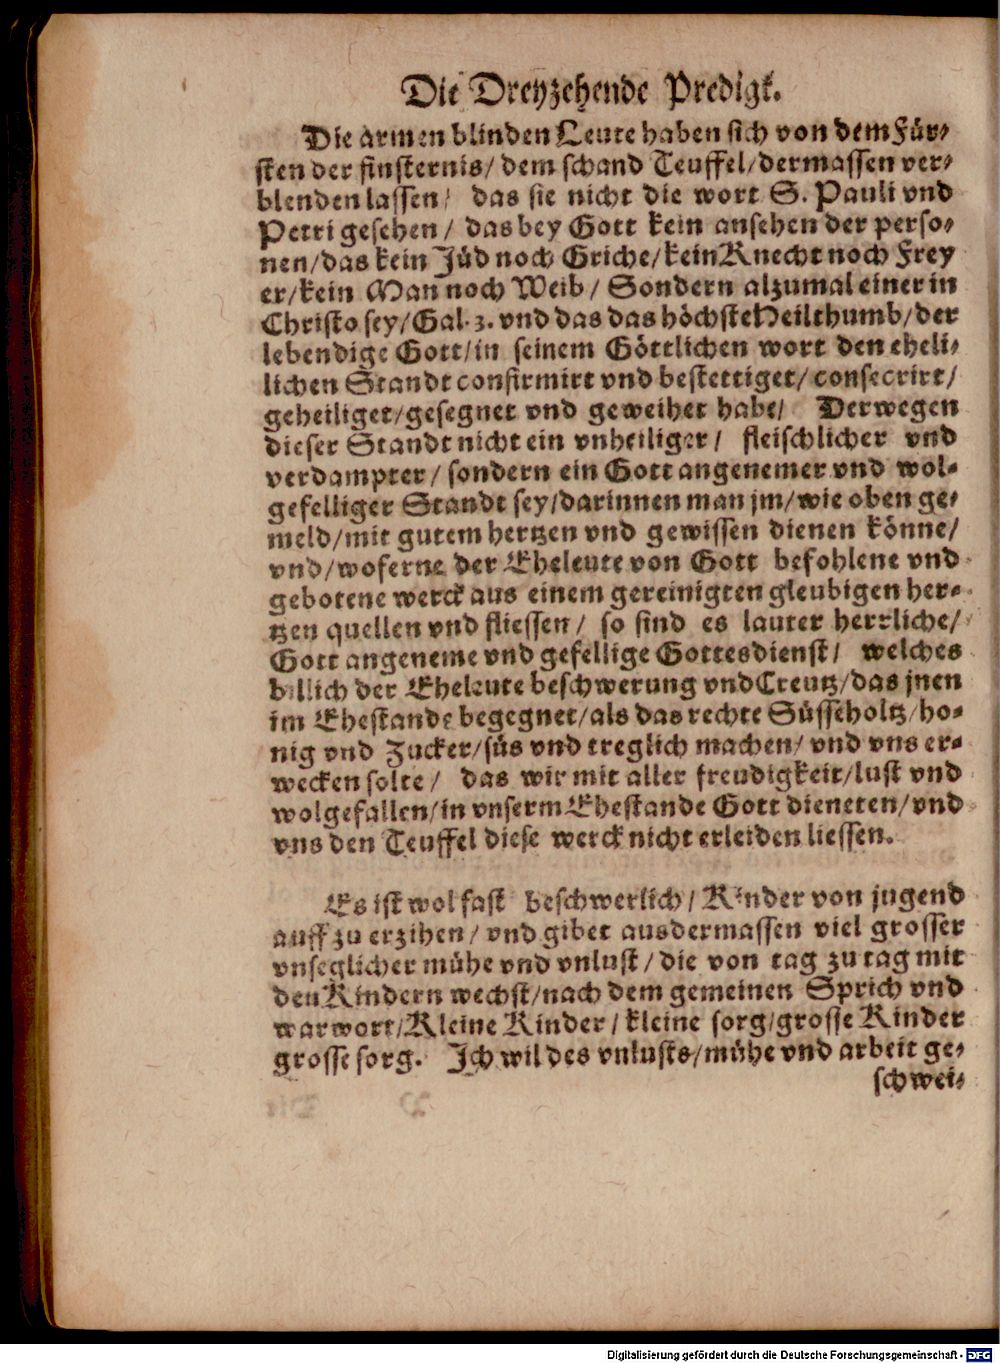 Die Dreyzehende Predigt.
Die armen blinden Leute haben sich von dem Für-
sten der finsternis/ dem schand Teuffel/ dermassen ver-
blenden lassen/ das sie nicht die wort S. Pauli vnd
Petri gesehen/ das bey Gott kein ansehen der perso-
nen/ das kein Jüd noch Griche/ kein Knecht noch Frey
er/ kein Man noch Weib/ Sondern alzumal einer in
Christo sey/ Gal. 3. vnd das das höchste Heilthumb/ der
lebendige Gott/ in seinem Göttlichen wort den eheli-
lichen Standt confirmirt vnd bestettiget/ consecrirt/
geheiliget/ gesegnet vnd geweihet habe/ Derwegen
dieser Standt nicht ein vnheiliger/ fleischlicher vnd
verdampter/ sondern ein Gott angenemer vnd wol-
gefelliger Standt sey/ darinnen man jm/ wie oben ge-
meld/ mit gutem hertzen vnd gewissen dienen könne/
vnd/ woferne der Eheleute von Gott befohlene vnd
gebotene werck aus einem gereinigten gleubigen her-
tzen quellen vnd fliessen/ so sind es lauter herrliche/
Gott angeneme vnd gefellige Gottesdienst/ welches
billich der Eheleute beschwerung vnd Creutz/ das jnen
im Ehestande begegnet/ als das rechte Süsseholtz/ ho-
nig vnd Zucker/ süs vnd treglich machen/ vnd vns er-
wecken solte/ das wir mit aller freudigkeit/ lust vnd
wolgefallen/ in vnserm Ehestande Gott dieneten/ vnd
vns den Teuffel diese werck nicht erleiden liessen.
Es ist wol fast beschwerlich/ Kinder von jugend
auff zu erzihen/ vnd gibet ausdermassen viel grosser
vnseglicher mühe vnd vnlust/ die von tag zu tag mit
den Kindern wechst/ nach dem gemeinen Sprich vnd
warwort/ Kleine Kinder/ kleine sorg/ grosse Kinder
grosse sorg. Ich wil des vnlusts/ mühe vnd arbeit ge-
schwei-
Digitalisierung gefördert durch die Deutsche Forschungsgemeinschaft - DFG